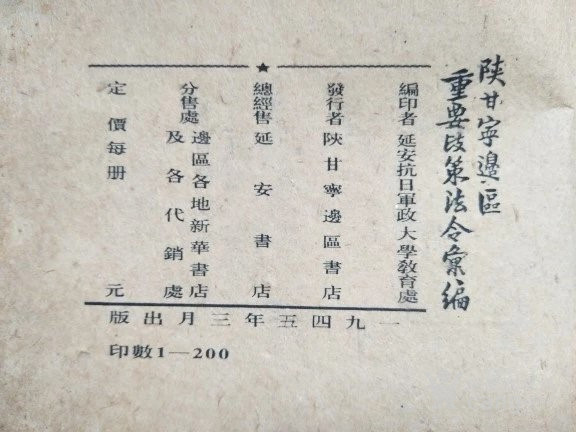 陝甘寧邊區
重要政策法令彙編
編印者 延安抗日軍政大學教育處
發行者 陝甘寧邊區書店
總經售 延安書店
分售處 邊區各地新華書店
及各代銷處
定價每册 元
一九四五年三月出版
印數1—200